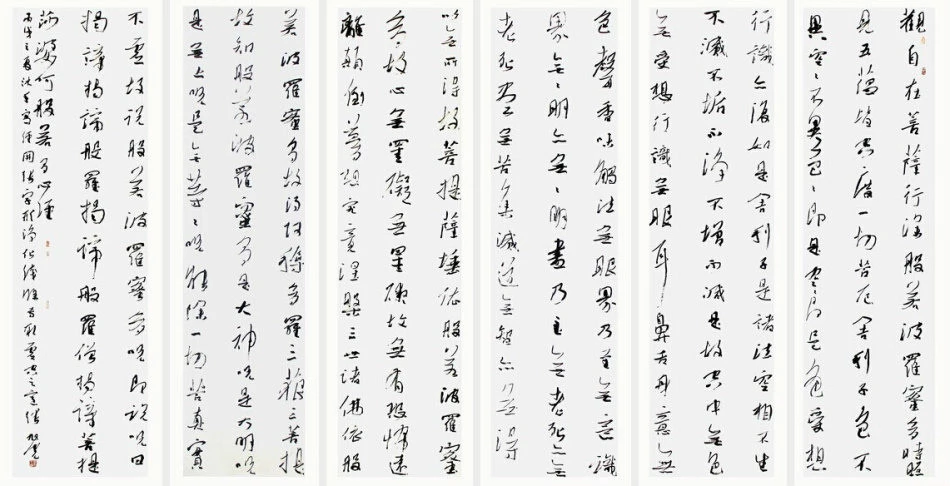 觀自在菩薩行深般若波羅蜜多時照
見五蘊皆空度一切苦厄舍利子色不
異空〻不異色〻即是空〻即是色受想
行識亦復如是舍利子是諸法空相不生
不滅不垢不淨不增不減是故空中無色
無受想行識無眼耳鼻舌身意無
色聲香味觸法無眼界乃至無意識
界無〻明亦無〻明盡乃至無老死亦無
老死盡無苦集滅道無智亦無得
以無所得故菩提薩埵依般若波羅蜜
多故心無罣礙無罣礙故無有恐怖遠
離顛倒夢想究竟涅槃三世諸佛依般
若波羅蜜多故得阿耨多羅三藐三菩提
故知般若波羅蜜多是大神咒是大明咒
是無上咒是無等〻咒能除一切苦真實
不虛故說般若波羅蜜多咒即說咒曰
揭諦揭諦般羅揭諦般羅僧揭諦菩提
莎婆何般若多心經